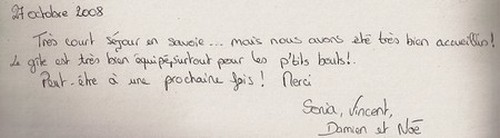 27 octobre 2008
Très court séjour en Savoie... mais nous avons été très bien accueillis!
Le gîte est très bien équipé, surtout pour les p'tits bouts!.
Peut-être à une prochaine fois! Merci
Sonia, Vincent,
Damien et Noë